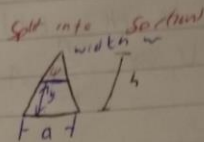 Split into Sections
width w
h
y
a